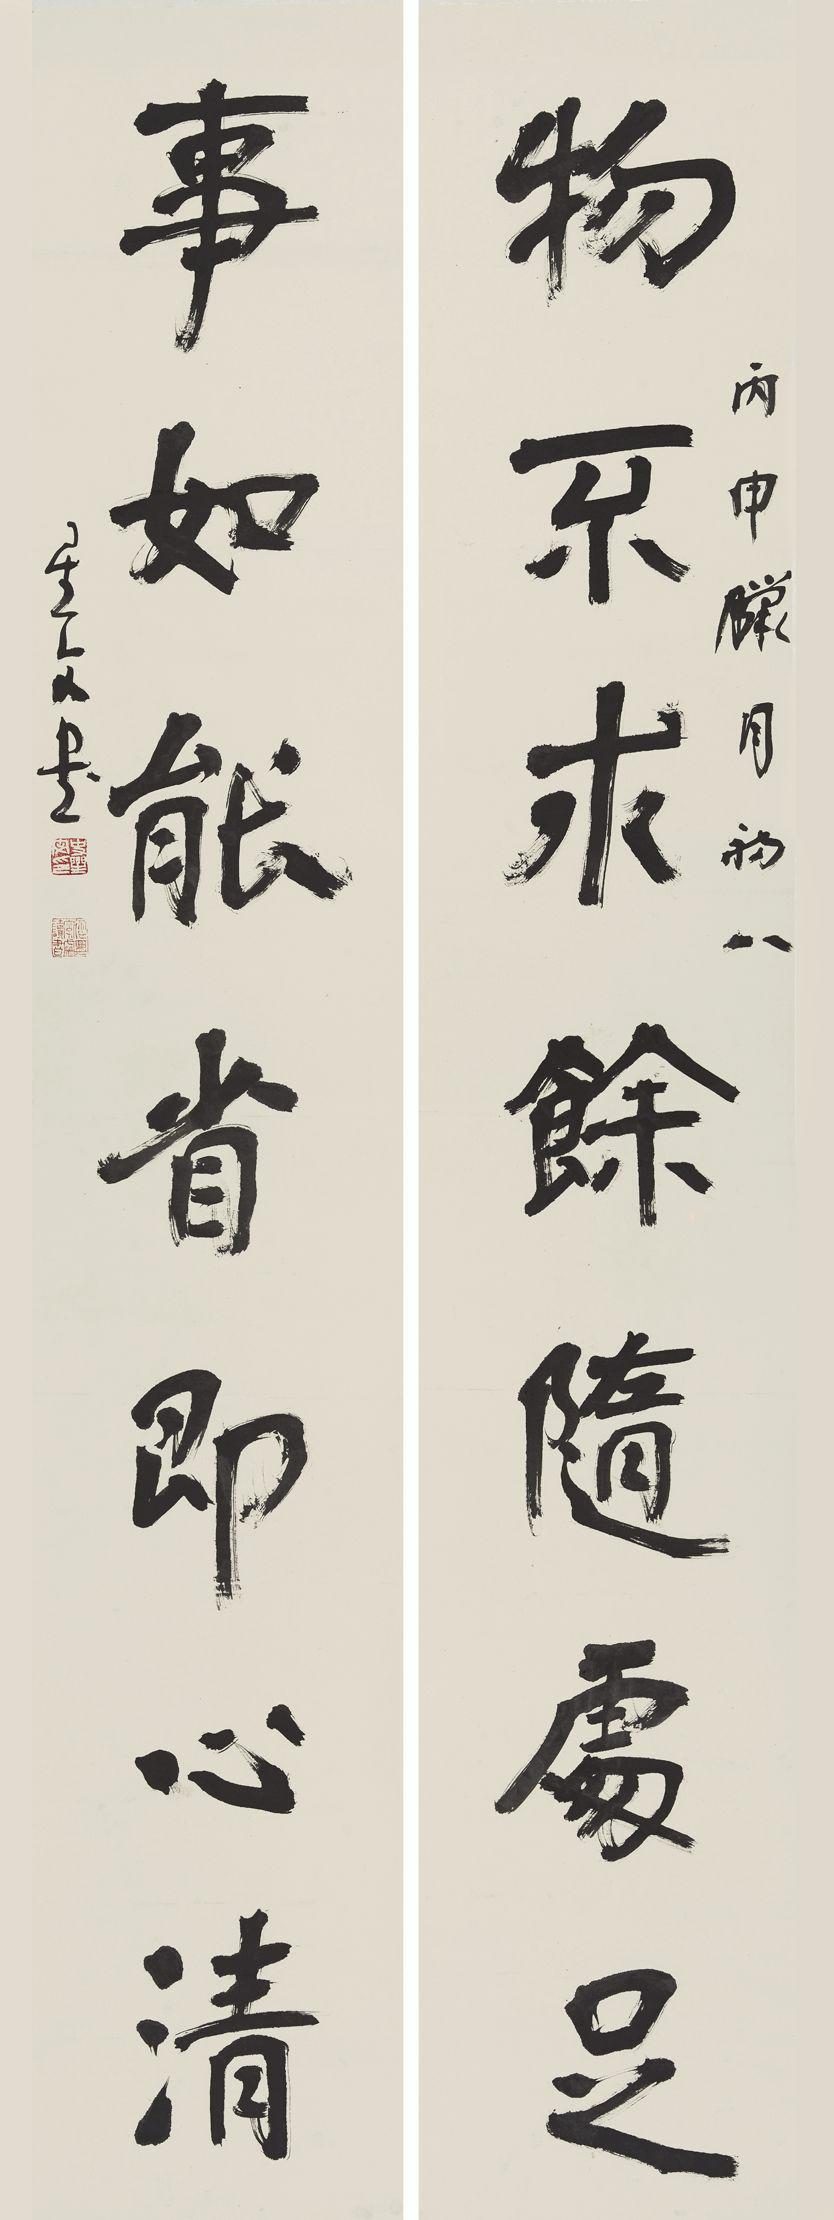 物不求餘隨處足
丙申臘月初八
事如能省即心清
星文書